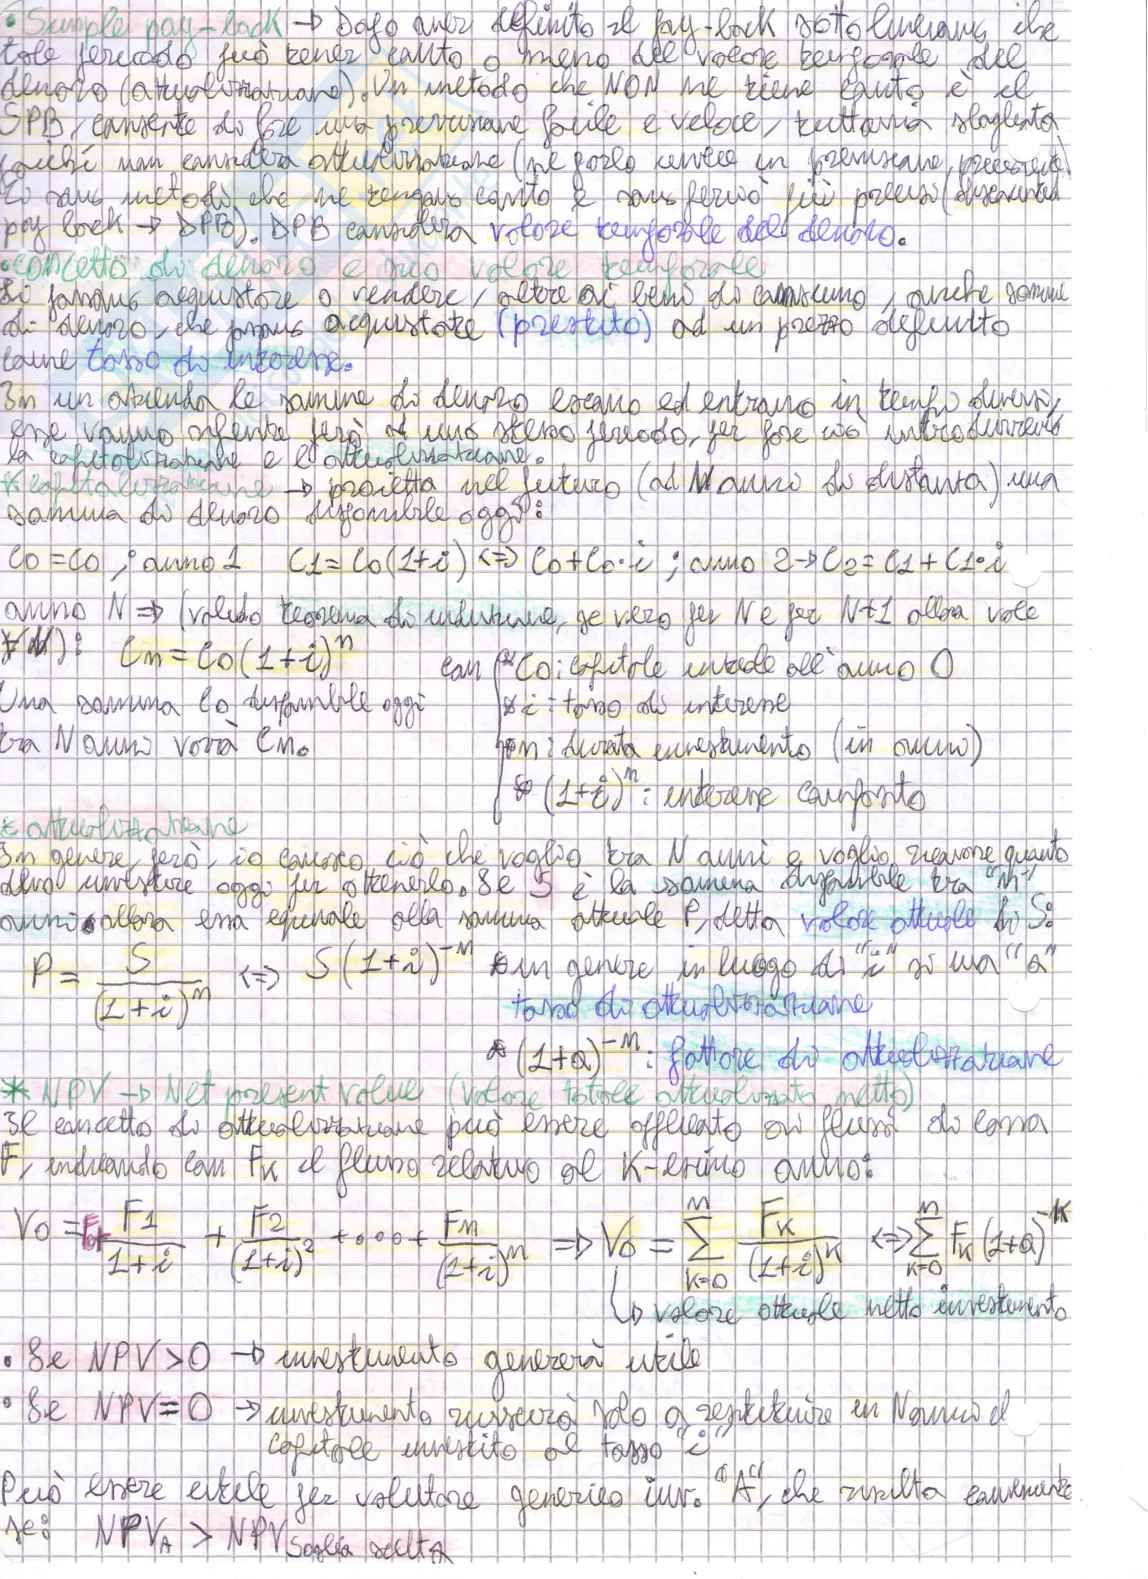 • Simple pay-back → Dopo aver definito il pay-back sottolineiamo che
tale periodo può tener conto o meno del valore temporale del
denaro (attualizzazione). Un metodo che NON ne tiene conto è il
SPB, consente di fare una previsione facile e veloce, tuttavia sbagliata
poiché non considera attualizzazione (ne parlo invece in previsione, precedente)
Ci sono metodi che ne tengono conto e sono perciò più precisi (discounted
pay back → DPB). DPB considera valore temporale del denaro.
• concetto di denaro e suo valore temporale
Si possono acquistare o vendere, oltre ai beni di consumo, anche somme
di denaro, che posso acquistare (prestito) ad un prezzo definito
come tasso di interesse.
In un azienda le somme di denaro escono ed entrano in tempi diversi,
esse vanno riferite però ad uno stesso periodo, per fare ciò introduciamo
la capitalizzazione e l'attualizzazione.
* capitalizzazione → proietta nel futuro (ad N anni di distanza) una
somma di denaro disponibile oggi:
C0 = C0 ; anno 1 C1 = C0(1+i) <=> C0 + C0·i ; anno 2 → C2 = C1 + C1·i
anno N => (valido teorema di induzione, se vero per N e per N+1 allora vale
∀N): Cn = C0(1+i)^n con * C0: capitale iniziale all'anno 0
Una somma C0 disponibile oggi * i: tasso di interesse
tra N anni varrà Cn. * n: durata investimento (in anni)
* (1+i)^n: interesse composto
* attualizzazione
In genere, però, io conosco ciò che voglio tra N anni e voglio ricavare quanto
devo investire oggi per ottenerlo. Se S è la somma disponibile tra "n"
anni allora essa equivale alla somma attuale P, detta valore attuale di S:
P = S/(1+i)^n <=> S(1+i)^-n * in genere in luogo di "i" si usa "a"
tasso di attualizzazione
* (1+a)^-n: fattore di attualizzazione
* NPV → Net present value (valore totale attualizzato netto)
Il concetto di attualizzazione può essere applicato ai flussi di cassa
F, indicando con FK il flusso relativo al K-esimo anno:
V0 = F0 + F1/(1+i) + F2/(1+i)^2 + ... + Fn/(1+i)^n => V0 = ∑_{K=0}^{n} FK/(1+i)^K <=> ∑_{K=0}^{n} FK(1+a)^-K
↳ valore attuale netto investimento
• Se NPV>0 → investimento genererà utile
• Se NPV=0 → investimento riuscirà solo a restituire in N anni il
capitale investito al tasso "i"
Può essere utile per valutare generico inv. "A", che risulta conveniente
se: NPVA > NPV Soglia scelta